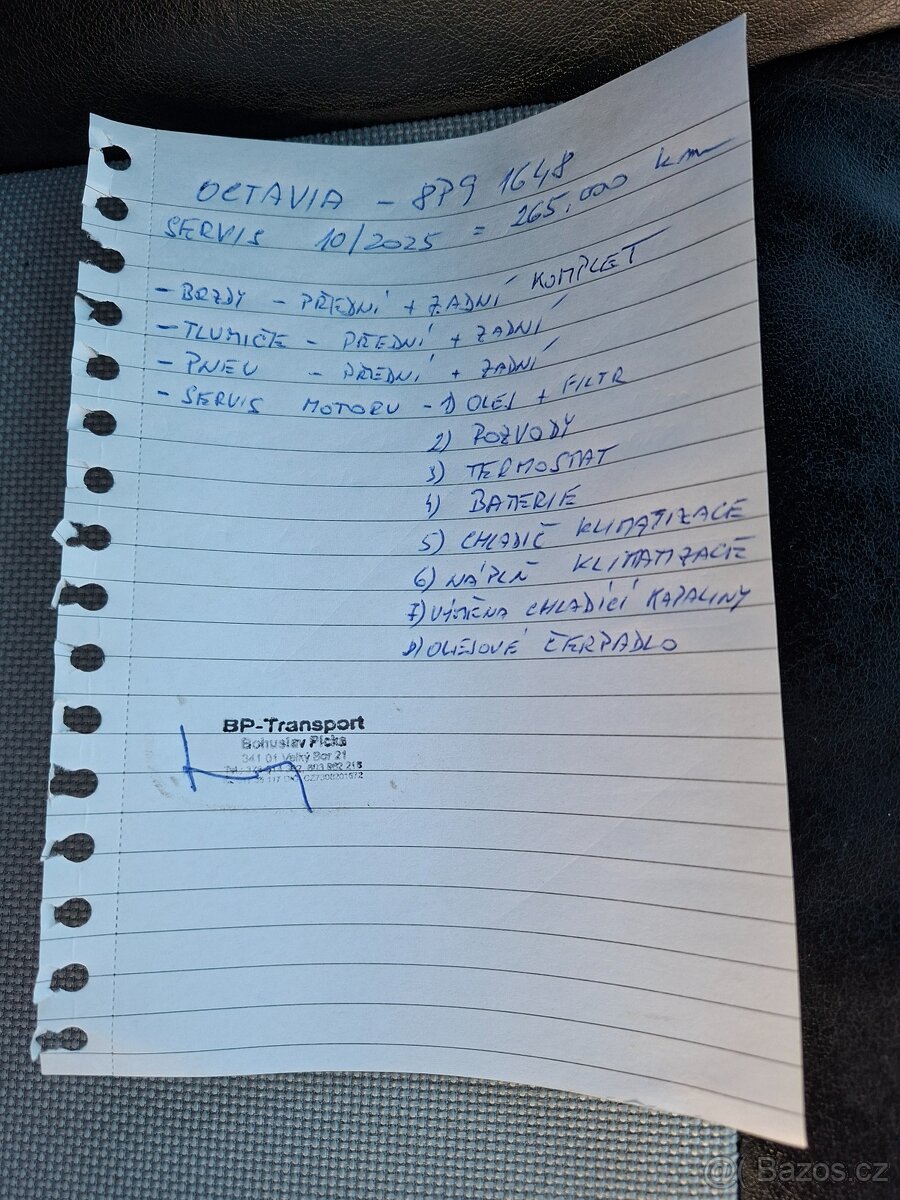 OCTAVIA - 8P9 1648
SERVIS 10/2025 = 265.000 km
- BRZDY - PŘEDNÍ + ZADNÍ KOMPLET
- TLUMIČE - PŘEDNÍ + ZADNÍ
- PNEU - PŘEDNÍ + ZADNÍ
- SERVIS MOTORU - 1) OLEJ + FILTR
2) ROZVODY
3) TERMOSTAT
4) BATERIE
5) CHLADIČ KLIMATIZACE
6) NÁPLŇ KLIMATIZACE
7) VÝMĚNA CHLADÍCÍ KAPALINY
8) OLEJOVÉ ČERPADLO
BP-Transport
Bohuslav Picka
341 01 Velký Bor 21
Bazos.cz